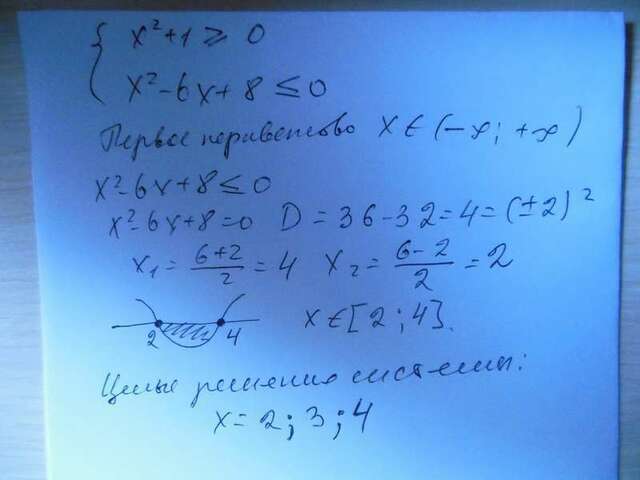 { x²+1 ≥ 0
x²-6x+8 ≤ 0
Первое неравенство x ∈ (-∞; +∞)
x²-6x+8 ≤ 0
x²-6x+8=0 D = 36-32=4=(±2)²
x₁ = (6+2)/2 = 4 x₂ = (6-2)/2 = 2
2 4 x ∈ [2; 4].
Целые решения системы:
x = 2; 3; 4